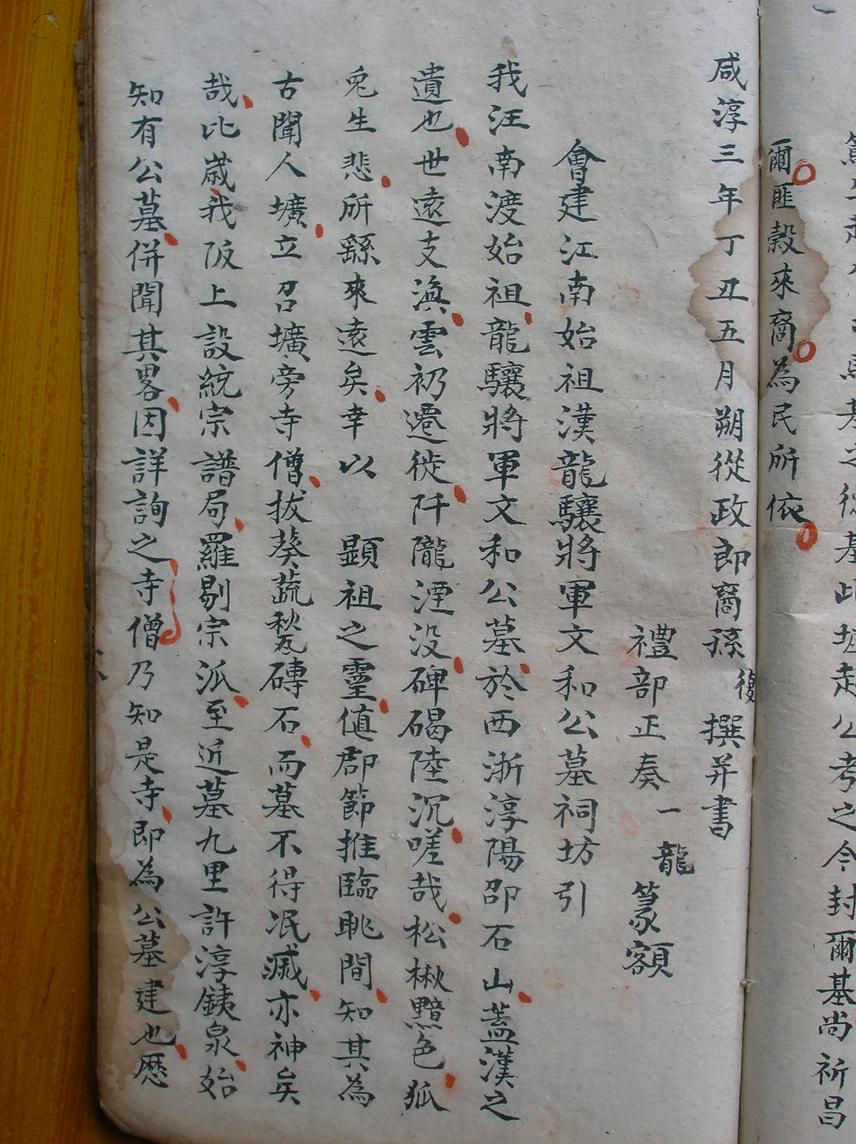 爾匪穀來裔為民所依
咸淳三年丁丑五月朔從政郎裔孫復撰并書
禮部正奏一龍篆額
會建江南始祖漢龍驤將軍文和公墓祠坊引
我汪南渡始祖龍驤將軍文和公墓於西浙淳陽邵石山蓋漢之
遺也世遠支漁雲礽遷徙阡隴湮没碑碣陸沉嗟哉松楸黯色狐
兎生悲所繇來遠矣幸以 顯祖之靈値郡節推臨眺間知其為
古聞人壙立召壙旁寺僧拔葵蔬甃磚石而墓不得泯滅亦神矣
哉比歲我阪上設統宗譜局羅剔宗派至近墓九里許淳銕泉始
知有公墓併聞其畧因詳詢之寺僧乃知是寺即為公墓建也歷